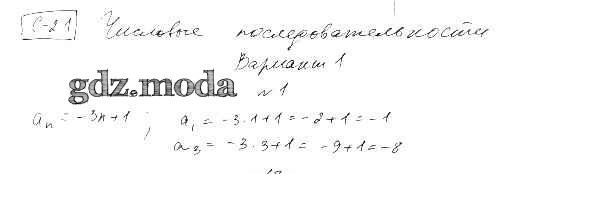 С-21 Числовые последовательности
Вариант 1
gdz.moda
№1
aₙ = -3n+1; a₁ = -3·1+1 = -2+1 = -1
a₃ = -3·3+1 = -9+1 = -8